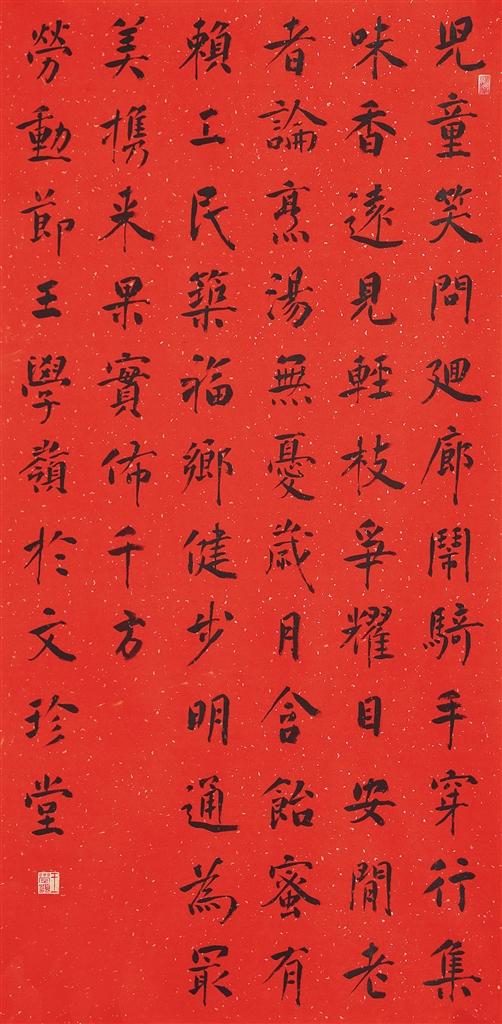 児童笑問廻廊鬧騎手穿行集
味香遠見輕枝爭耀目安閒老
者論烹湯無憂歲月含飴蜜有
賴工民築福鄉健步明通為最
美携来果實佈千方
勞動節王學嶺於文珍堂